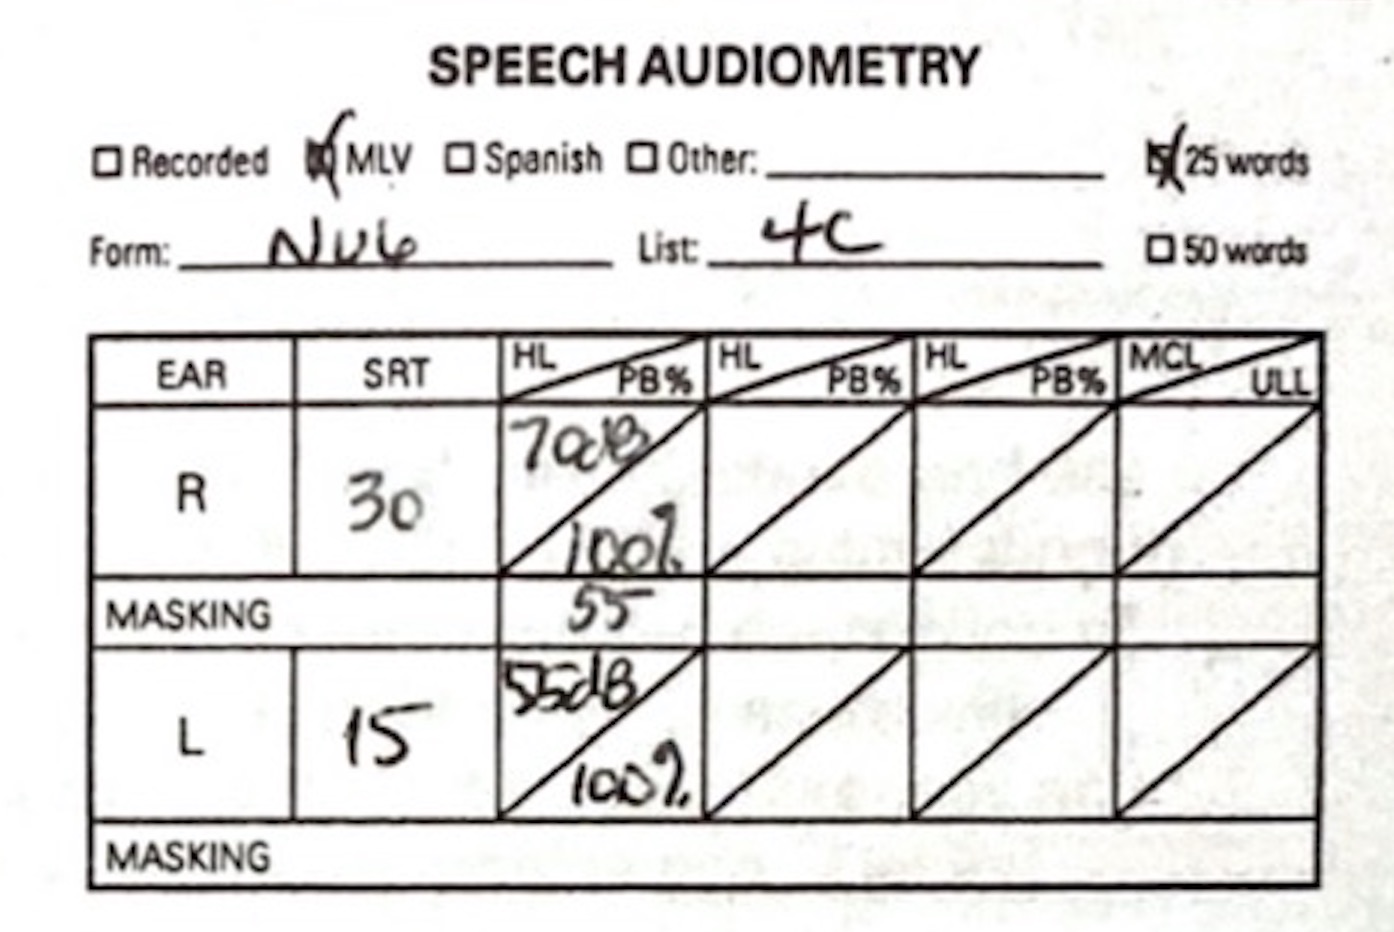 SPEECH AUDIOMETRY
Recorded MLV Spanish Other: 25 words
Form: NU6 List: 4C 50 words
EAR SRT HL PB% HL PB% HL PB% MCL ULL
R 30 70dB 100%
MASKING 55
L 15 55dB 100%
MASKING